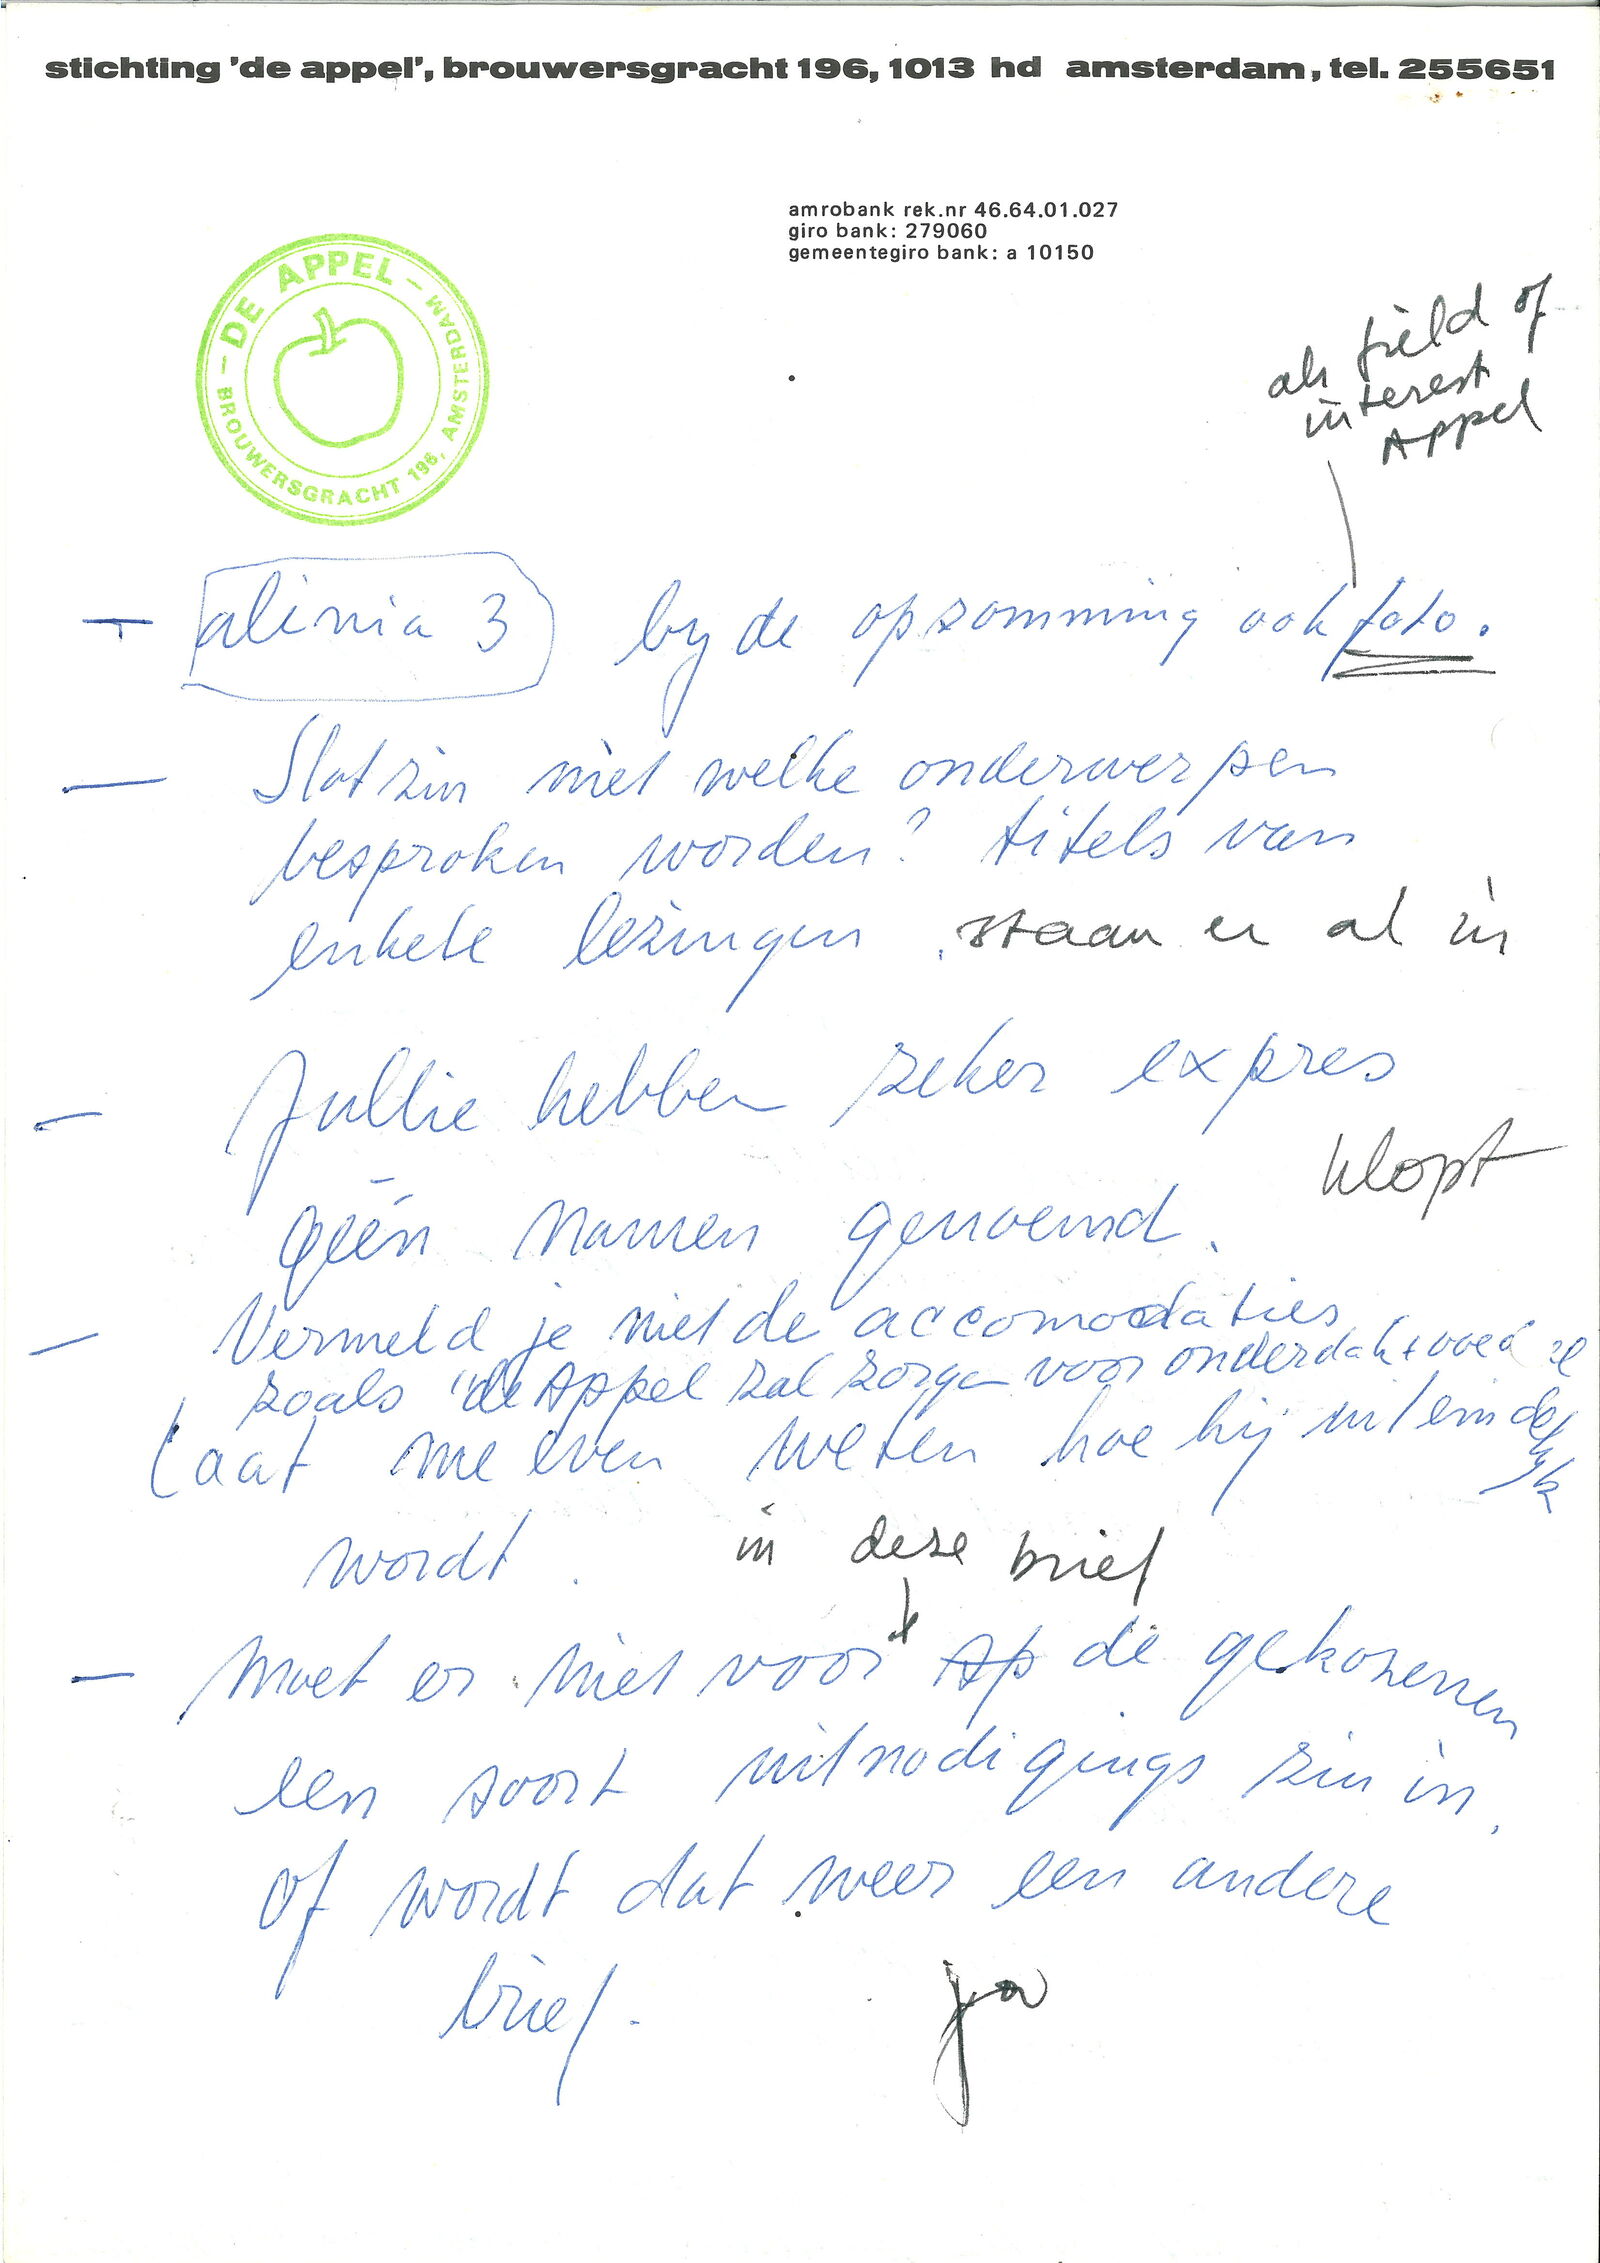 stichting 'de appel', brouwersgracht 196, 1013 hd amsterdam, tel. 255651
amrobank rek.nr 46.64.01.027
giro bank: 279060
gemeentegiro bank: a 10150
— DE APPEL —
BROUWERSGRACHT 196, AMSTERDAM
als field of
interest
Appel
— alinia 3 by de opsomming ook foto.
— Slotzin met welke onderwerpen
besproken worden? titels van
enkele lezingen. staan er al in
— Jullie hebben zeker expres
klopt
géén namen genoemd.
— Vermeld je niet de accomodaties
zoals "de Appel zal zorgen voor onderdak +
Laat me even weten hoe hij uiteindelijk
wordt.
in deze brief
— Moet er niet voor Ap de gekozenen
een soort uitnodigings zin in.
Of wordt dat weer een andere
brief.
ja